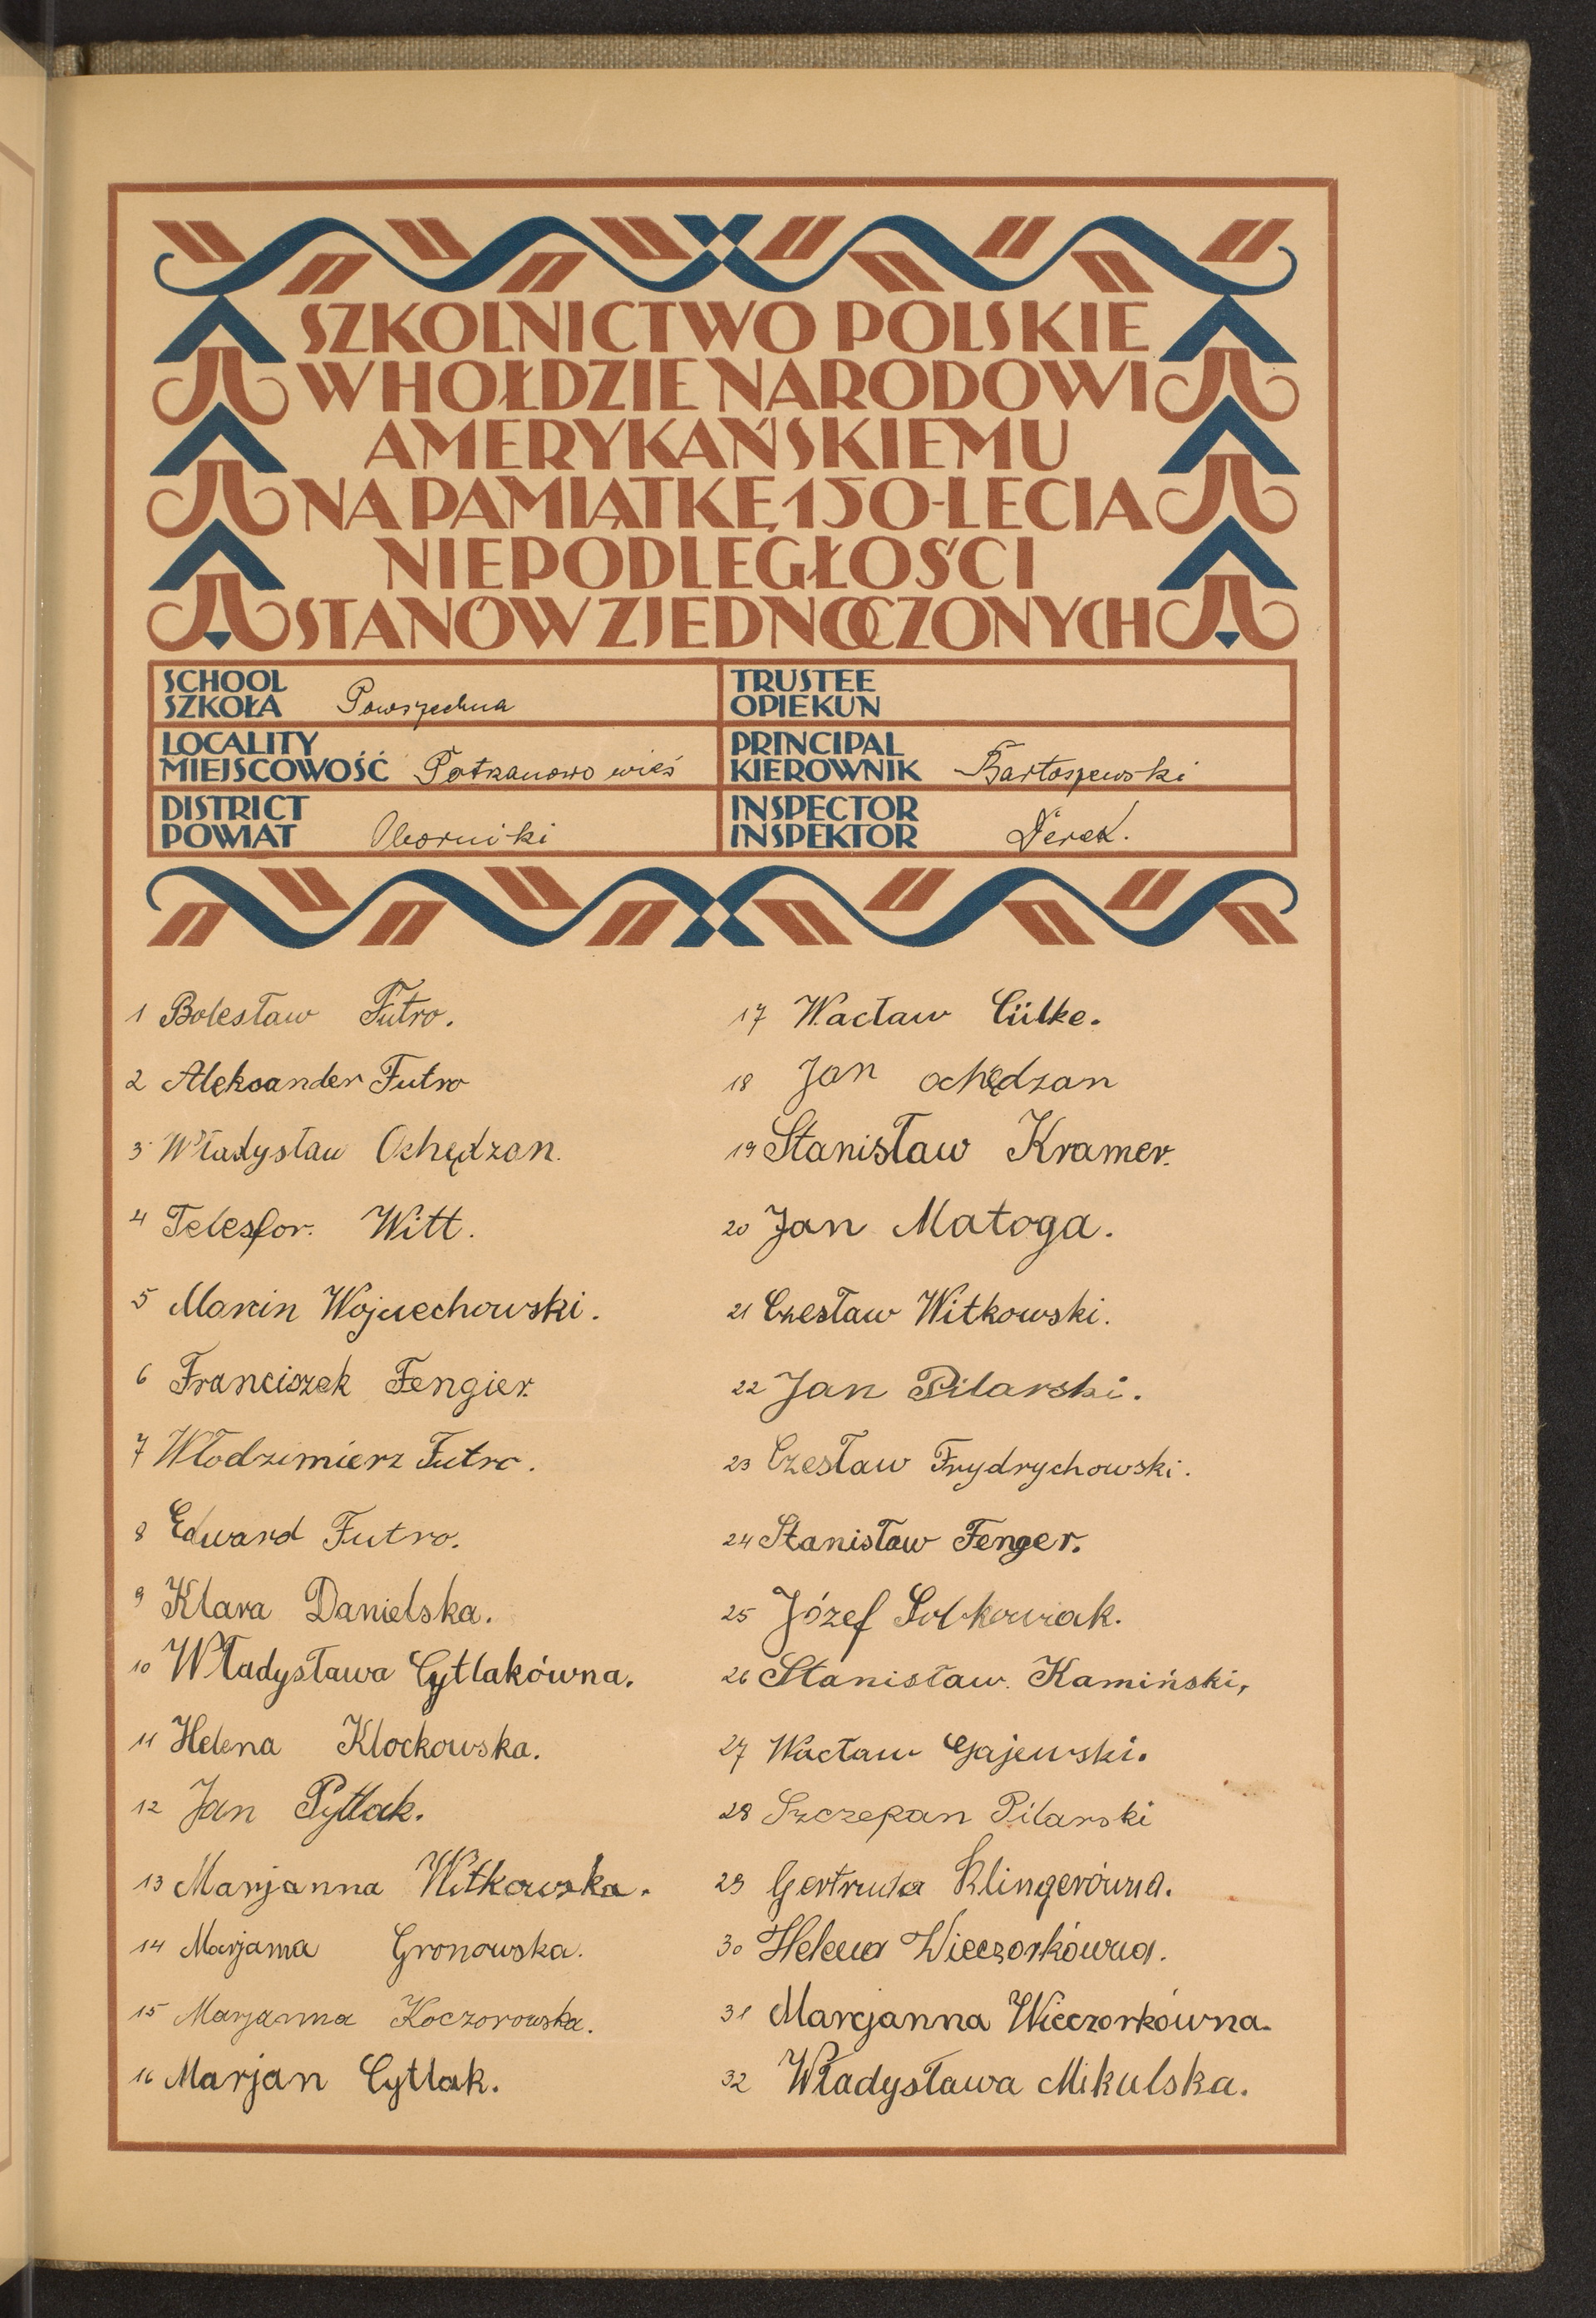 SZKOLNICTWO POLSKIE
W HOŁDZIE NARODOWI
AMERYKAŃSKIEMU
NA PAMIĄTKĘ 150-LECIA
NIEPODLEGŁOŚCI
STANÓW ZJEDNOCZONYCH
SCHOOL
SZKOŁA Powszechna
TRUSTEE
OPIEKUN
LOCALITY
MIEJSCOWOŚĆ Potrzanowo wieś
PRINCIPAL
KIEROWNIK Bartoszewski
DISTRICT
POWIAT Oborniki
INSPECTOR
INSPEKTOR Derek.
1 Bolesław Futro.
2 Aleksander Futro
3 Władysław Ochędzan.
4 Telesfor. Witt.
5 Marcin Wojciechowski.
6 Franciszek Fengier.
7 Włodzimierz Futro.
8 Edward Futro.
9 Klara Danielska.
10 Władysława Cytlakówna.
11 Helena Klockowska.
12 Jan Pytlak.
13 Marjanna Witkowska.
14 Marjanna Gronowska.
15 Marjanna Koczorowska.
16 Marjan Cytlak.
17 Wacław Cülke.
18 Jan Ochędzan
19 Stanisław Kramer.
20 Jan Matoga.
21 Czesław Witkowski.
22 Jan Pilarski.
23 Czesław Frydrychowski.
24 Stanisław Fenger.
25 Józef Sobkowiak.
26 Stanisław. Kamiński,
27 Wacław Gajewski.
28 Szczepan Pilarski
29 Gertruda Klingerówna.
30 Helena Wieczorkówna.
31 Marcjanna Wieczorkówna.
32 Władysława Mikulska.